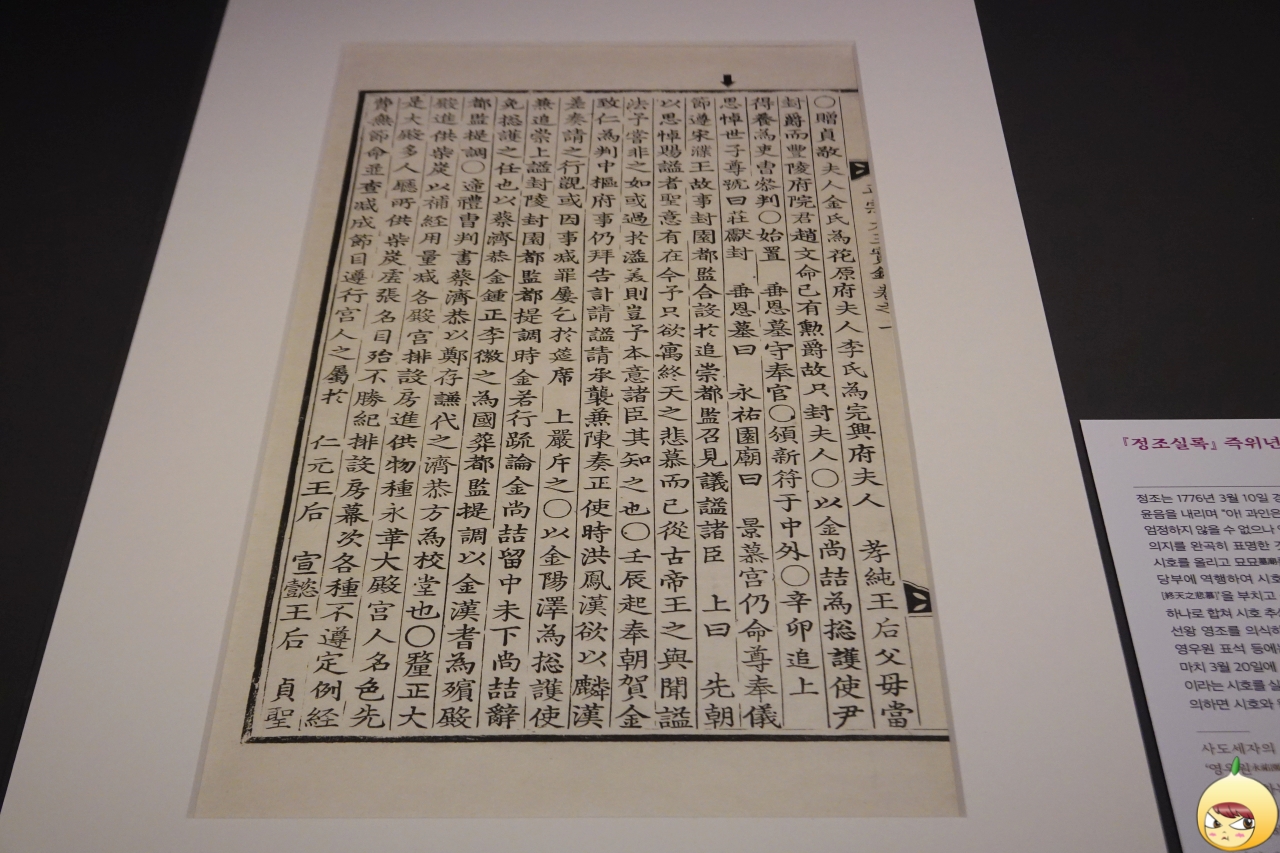 ○贈貞敬夫人金氏為花原府夫人李氏為完興府夫人 孝純王后父母當
封爵而豐陵府院君趙文命已有勲爵故只封夫人○以金尚喆為揔護使尹
得養為吏曹叅判○始置 垂恩墓守奉官○頒新符于中外○辛卯追上
思悼世子尊號曰莊獻封 垂恩墓曰 永祐園廟曰 景慕宮仍命尊奉儀
節遵宋濮王故事封園都監合設於追崇都監召見議謚諸臣 上曰 先朝
以思悼賜謚者聖意有在今予只欲寓終天之悲慕而已從古帝王之與聞謚
法予嘗非之如或過於溢美則豈予本意諸臣其知之也○壬辰起奉朝賀金
致仁為判中樞府事仍拜告訃請謚請承襲兼陳奏正使時洪鳳漢欲以麟漢
差奏請之行觀或因事減罪屢乞於筵席 上嚴斥之○以金陽澤為揔護使
兼追崇上謚封陵封園都監都提調時金若行疏論金尚喆留中未下尚喆辭
免揔護之任也以蔡濟恭金鍾正李徽之為國葬都監提調以金漢耆為殯殿
都監提調○遞禮曹判書蔡濟恭以鄭存謙代之濟恭方為校堂也○釐正大
殿進供柴炭以補經用量減各殿宮排設房進供物種永華大殿宮人名色先
是大殿多人廳所供柴炭虛張名目殆不勝紀排設房幕次各種不遵定例經
費無節命並查減成節目遵行宮人之屬於 仁元王后 宣懿王后 貞聖
『정조실록』 즉위년
정조는 1776년 3월 10일
윤음을 내리며 "아! 과인은
엄정하지 않을 수 없으나
의지를 완곡히 표명한
시호를 올리고 묘묘
당부에 역행하여 시호
[終天之悲慕]'을 부치고
하나로 합쳐 시호
선왕 영조를 의식하
영우원 표석 등에
마치 3월 20일에
이라는 시호를
의하면 시호와
사도세자의
"영우원